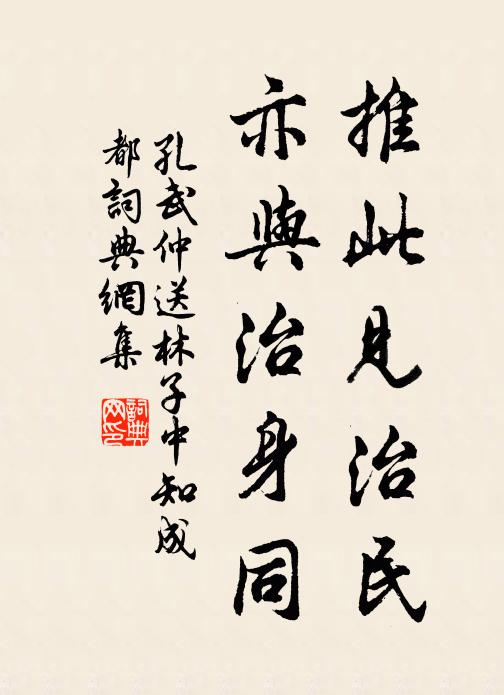 推此見治民
亦與治身同
孔武仲送林子中知成
都詞典網集
詞典網印